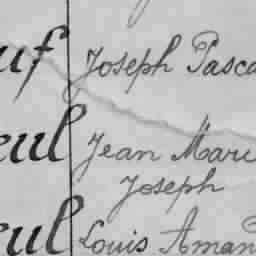 uf Joseph Pasca
eul Jean Mari
Joseph
eul Louis Aman